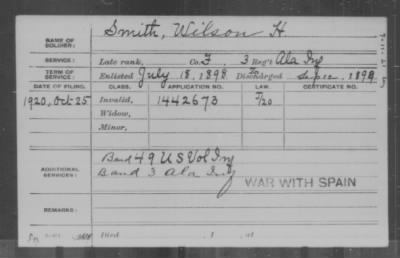 NAME OF SOLDIER: Smith, Wilson H.
SERVICE: Late rank, Co. F, 3 Reg't Ala Inf
TERM OF SERVICE: Enlisted July 18, 1898 Discharged 1899
DATE OF FILING. CLASS. APPLICATION NO. LAW. CERTIFICATE NO.
1920, Oct 25 Invalid, 1442673
Widow,
Minor,
ADDITIONAL SERVICES: Band 49 U S Vol Inf
Band 3 Ala Inf
WAR WITH SPAIN
REMARKS:
Died , 1 , at